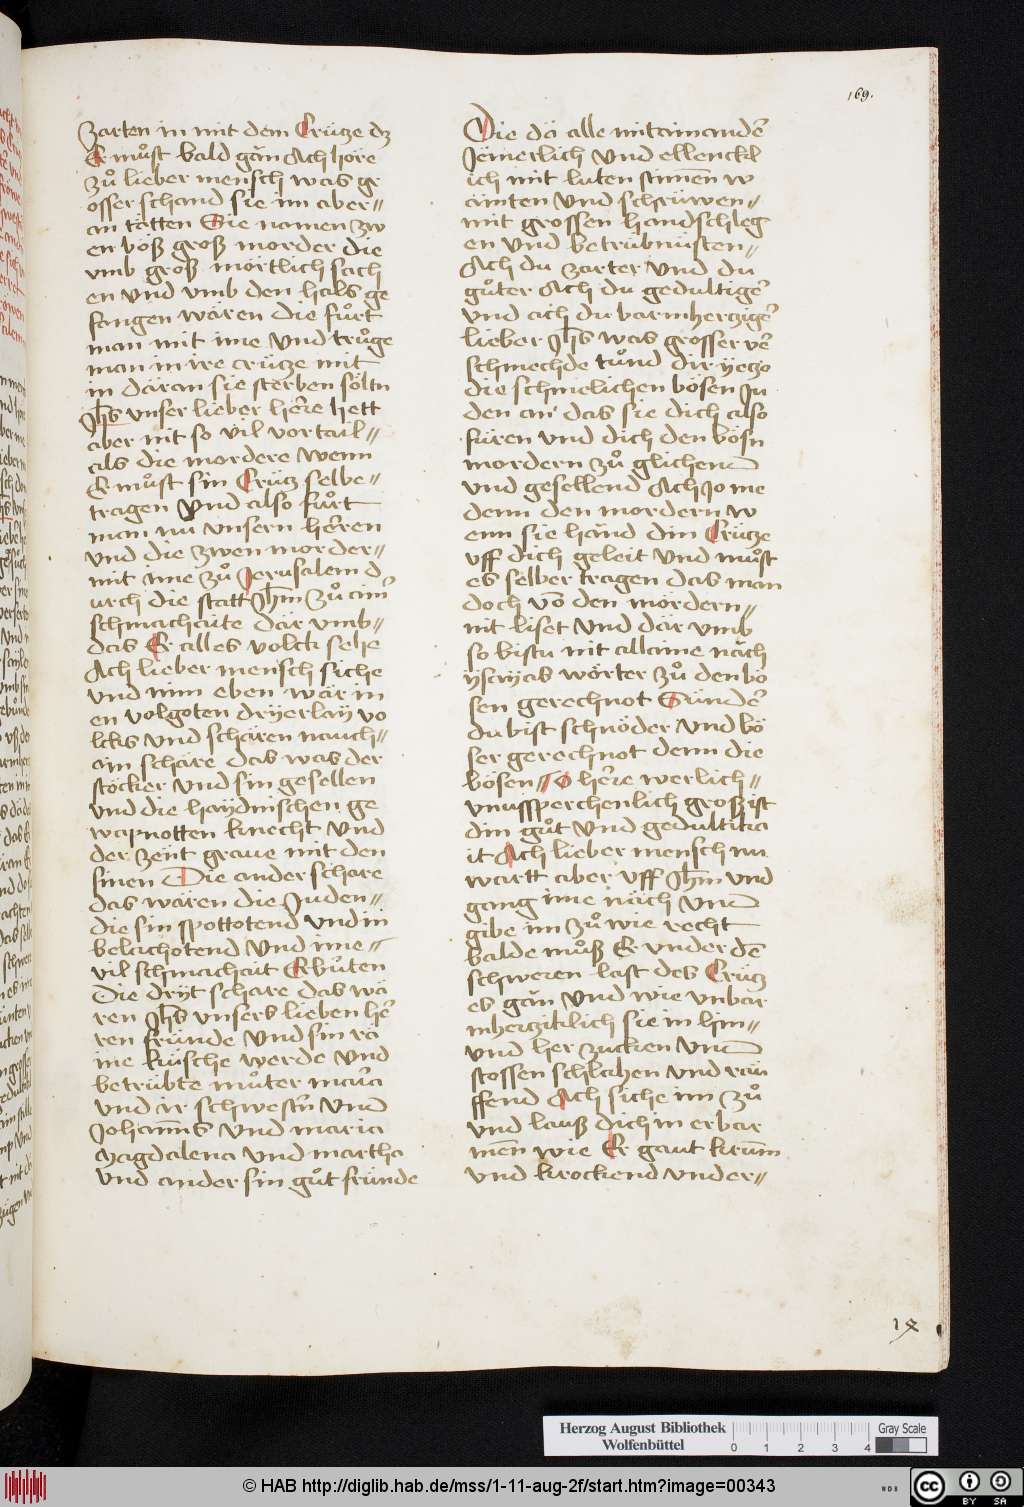 169.
zarten in mit dem Crütze dz
Er müst bald gän Ach höre
zů lieber mensch was gr
osser schand sie im aber//
an tätten Sie namen zw
en böß groß morder die
vmb groß mörtlich sach
en vnd vmb den hals ge
fangen wären die fůrt
man mit ime vnd trůge
man in ire crütze mit
in däran sie sterben söltn
Jhs vnser lieber herre hett
aber nit so vil vortail//
als die mordere wenn
Er můst sin Crütz selbe//
tragen vnd also fůrt
man nu vnsern herren
vnd die zwen morder//
mit ime zů Jerusalem d
urch die statt Jhm zů ainr
schmachaite där vmb//
das Er alles volck sehe
Ach lieber mensch siche
vnd nim eben wär in
en volgoten dryerlaÿ vo
lcks vnd schären nauch//
ain schäre das was der
stöcker vnd sin gesellen
vnd die haÿdnischen ge
wapnotten knecht vnd
der zent graue mit den
sinen Die ander schare
das wären die Juden//
die sin spottotend vnd in
belachotend vnd ime//
vil schmachait Erbůten
Die dryt schare das wä
ren Jhs vnsers lieben her
ren fründe vnd sin rä
ine küsche werde vnd
betrübte můter maria
vnd ir schwestrn vnd
Johannis vnd maria
Magdalena vnd martha
vnd ander sin gůt fründe
Die dä alle mitainander
Jemerlich vnd ellenckl
ich mit luten stimen w
ainten vnd schrüwen//
mit grossen handschleg
en vnd betrübnüsten//
Ach du zarter vnd du
gůter Ach du gedultiger
vnd ach du barmherziger
lieber Jhs was grosser ver
schmechde tůnd dir ÿetzo
die schmelichen bösen Ju
den an das sie dich also
füren vnd dich den bösn
mordern zů glichend
vnd gesellend Ach Jo me
denn den mordern w
enn sie händ din Crütze
vff dich geleit vnd můst
es selber tragen das man
doch von den mördern//
nit liset vnd där vmb
so bistu nit allaine näch
ÿsaÿas wörter zů den bö
sen gerechnot Sünder
du bist schnöder vnd bö
ser gerechnot denn die
bösen// O herre werlich//
vnussperchenlich groß ist
din gůt vnd gedultika
it Ach lieber mensch nu
wartt aber vff Jhm vnd
gang ime näch vnd
gibe im zů wie recht
balde můß Er vnder der
schweren last des Crütz
es gän vnd wie vnbar
mherziklich sie in hin//
vnd her zucken vnd
stossen schlahen vnd räu
ffend Ach siche im zů
vnd lauß dich in erbar
men wie Er gaut krum
vnd krockend vnder//
Herzog August Bibliothek
Wolfenbüttel
0 1 2 3 4
Gray Scale
© HAB http://diglib.hab.de/mss/1-11-aug-2f/start.htm?image=00343
WDB
CC BY SA